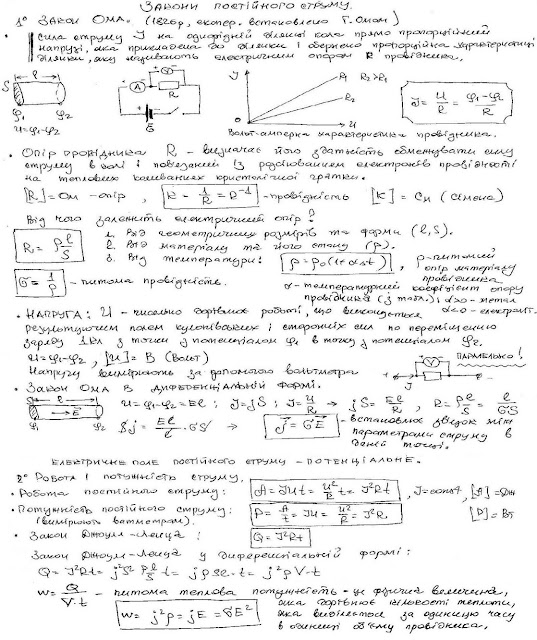 ЗАКОНИ ПОСТІЙНОГО СТРУМУ.
1° ЗАКОН ОМА. (1826р, експер. встановлено Г. Омом)
• Сила струму J на однорідній ділянці кола прямо пропорційний
напрузі, яка прикладена до ділянки і обернено пропорційна характеристиці
ділянки, яку називають електричним опором R провідника.
S ℓ
φ₁ φ₂
U=φ₁-φ₂
A V R
Ɛ
J R₁ R₂>R₁
R₂
U
Вольт-амперна характеристика провідника.
J = U/R = (φ₁-φ₂)/R
• Опір провідника R - визначає його здатність обмежувати силу
струму в колі і пов'язаний із розсіюванням електронів провідності
на теплових коливаннях кристалічної гратки.
[R] = Ом - опір , K = 1/R = R⁻¹ - провідність [K] = См (Сіменс)
Від чого залежить електричний опір?
R = ρℓ/S
1. Від геометричних розмірів та форми (ℓ, S).
2. Від матеріалу та його стану (ρ).
3. Від температури: ρ = ρ₀(1+αΔt) , ρ - питомий
опір матеріалу
провідника
σ = 1/ρ - питома провідність.
α - температурний коефіцієнт опору
провідника (з табл.); α>0 - метал
α<0 - електроліт.
• НАПРУГА: U - чисельно дорівнює роботі, що виконується
результуючим полем кулонівських і сторонніх сил по переміщенню
заряду 1Кл з точки з потенціалом φ₁ в точку з потенціалом φ₂.
U=φ₁-φ₂ , [U] = В (Вольт)
Напругу вимірюють за допомогою вольтметра
V ПАРАЛЕЛЬНО!
J R
• Закон Ома в диференціальній формі.
S ℓ E
φ₁ φ₂
U=φ₁-φ₂=Eℓ ; J=jS ; J=U/R ⇒ jS = Eℓ/R , R = ρℓ/S = ℓ/σS
Sj = Eℓ/ℓ · σS ⇒ j = σE - встановлює зв'язок між
параметрами струму в
даній точці.
ЕЛЕКТРИЧНЕ ПОЛЕ ПОСТІЙНОГО СТРУМУ - ПОТЕНЦІАЛЬНЕ.
2° Робота і потужність струму.
• Робота постійного струму: A = JUt = U²/R t = J²Rt , J=const, [A] = Дж
• Потужність постійного струму: P = A/t = JU = U²/R = J²R [P] = Вт
(вимірюють ватметрам).
• Закон Джоуля-Ленца: Q = J²Rt
Закон Джоуля-Ленца у диференціальній формі:
Q = J²Rt = j²S² ρℓ/S t = j²ρSℓ·t = j²ρV·t
w = Q/V·t - питома теплова потужність - це фізична величина,
яка дорівнює кількості теплоти,
яка виділяється за одиницю часу
в одиниці об'єму провідника.
w = j²ρ = jE = σE²